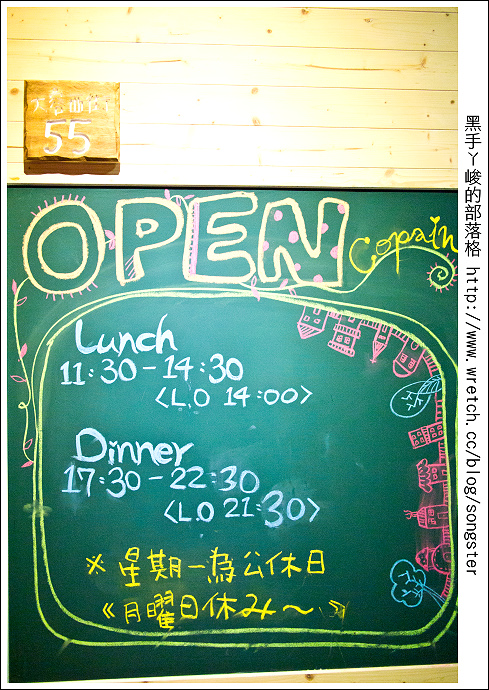 55
OPEN
Copain
Lunch
11:30-14:30
<L.O 14:00>
Dinner
17:30-22:30
<L.O 21:30>
※星期一為公休日
《月曜日休み〜》
黑手ㄚ峻的部落格 http://www.wretch.cc/blog/songster